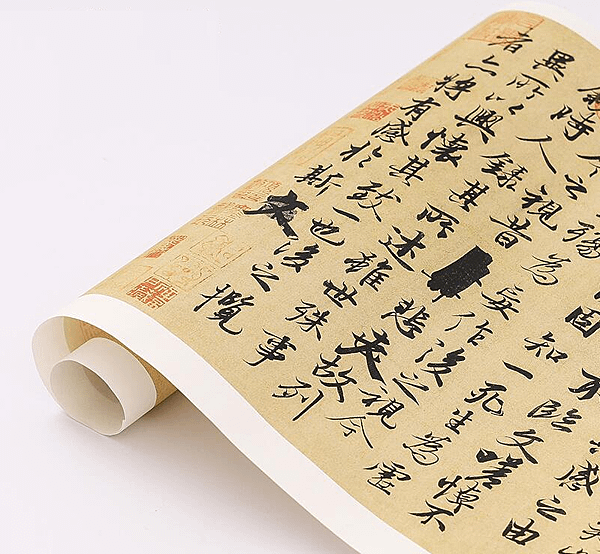 感之由
不臨文嗟悼不
固知一死生為虛
殤為妄作後之視今
之視昔悲夫故列
時人錄其所述雖世殊事
異所以興懷其致一也後之攬
者亦將有感於斯文